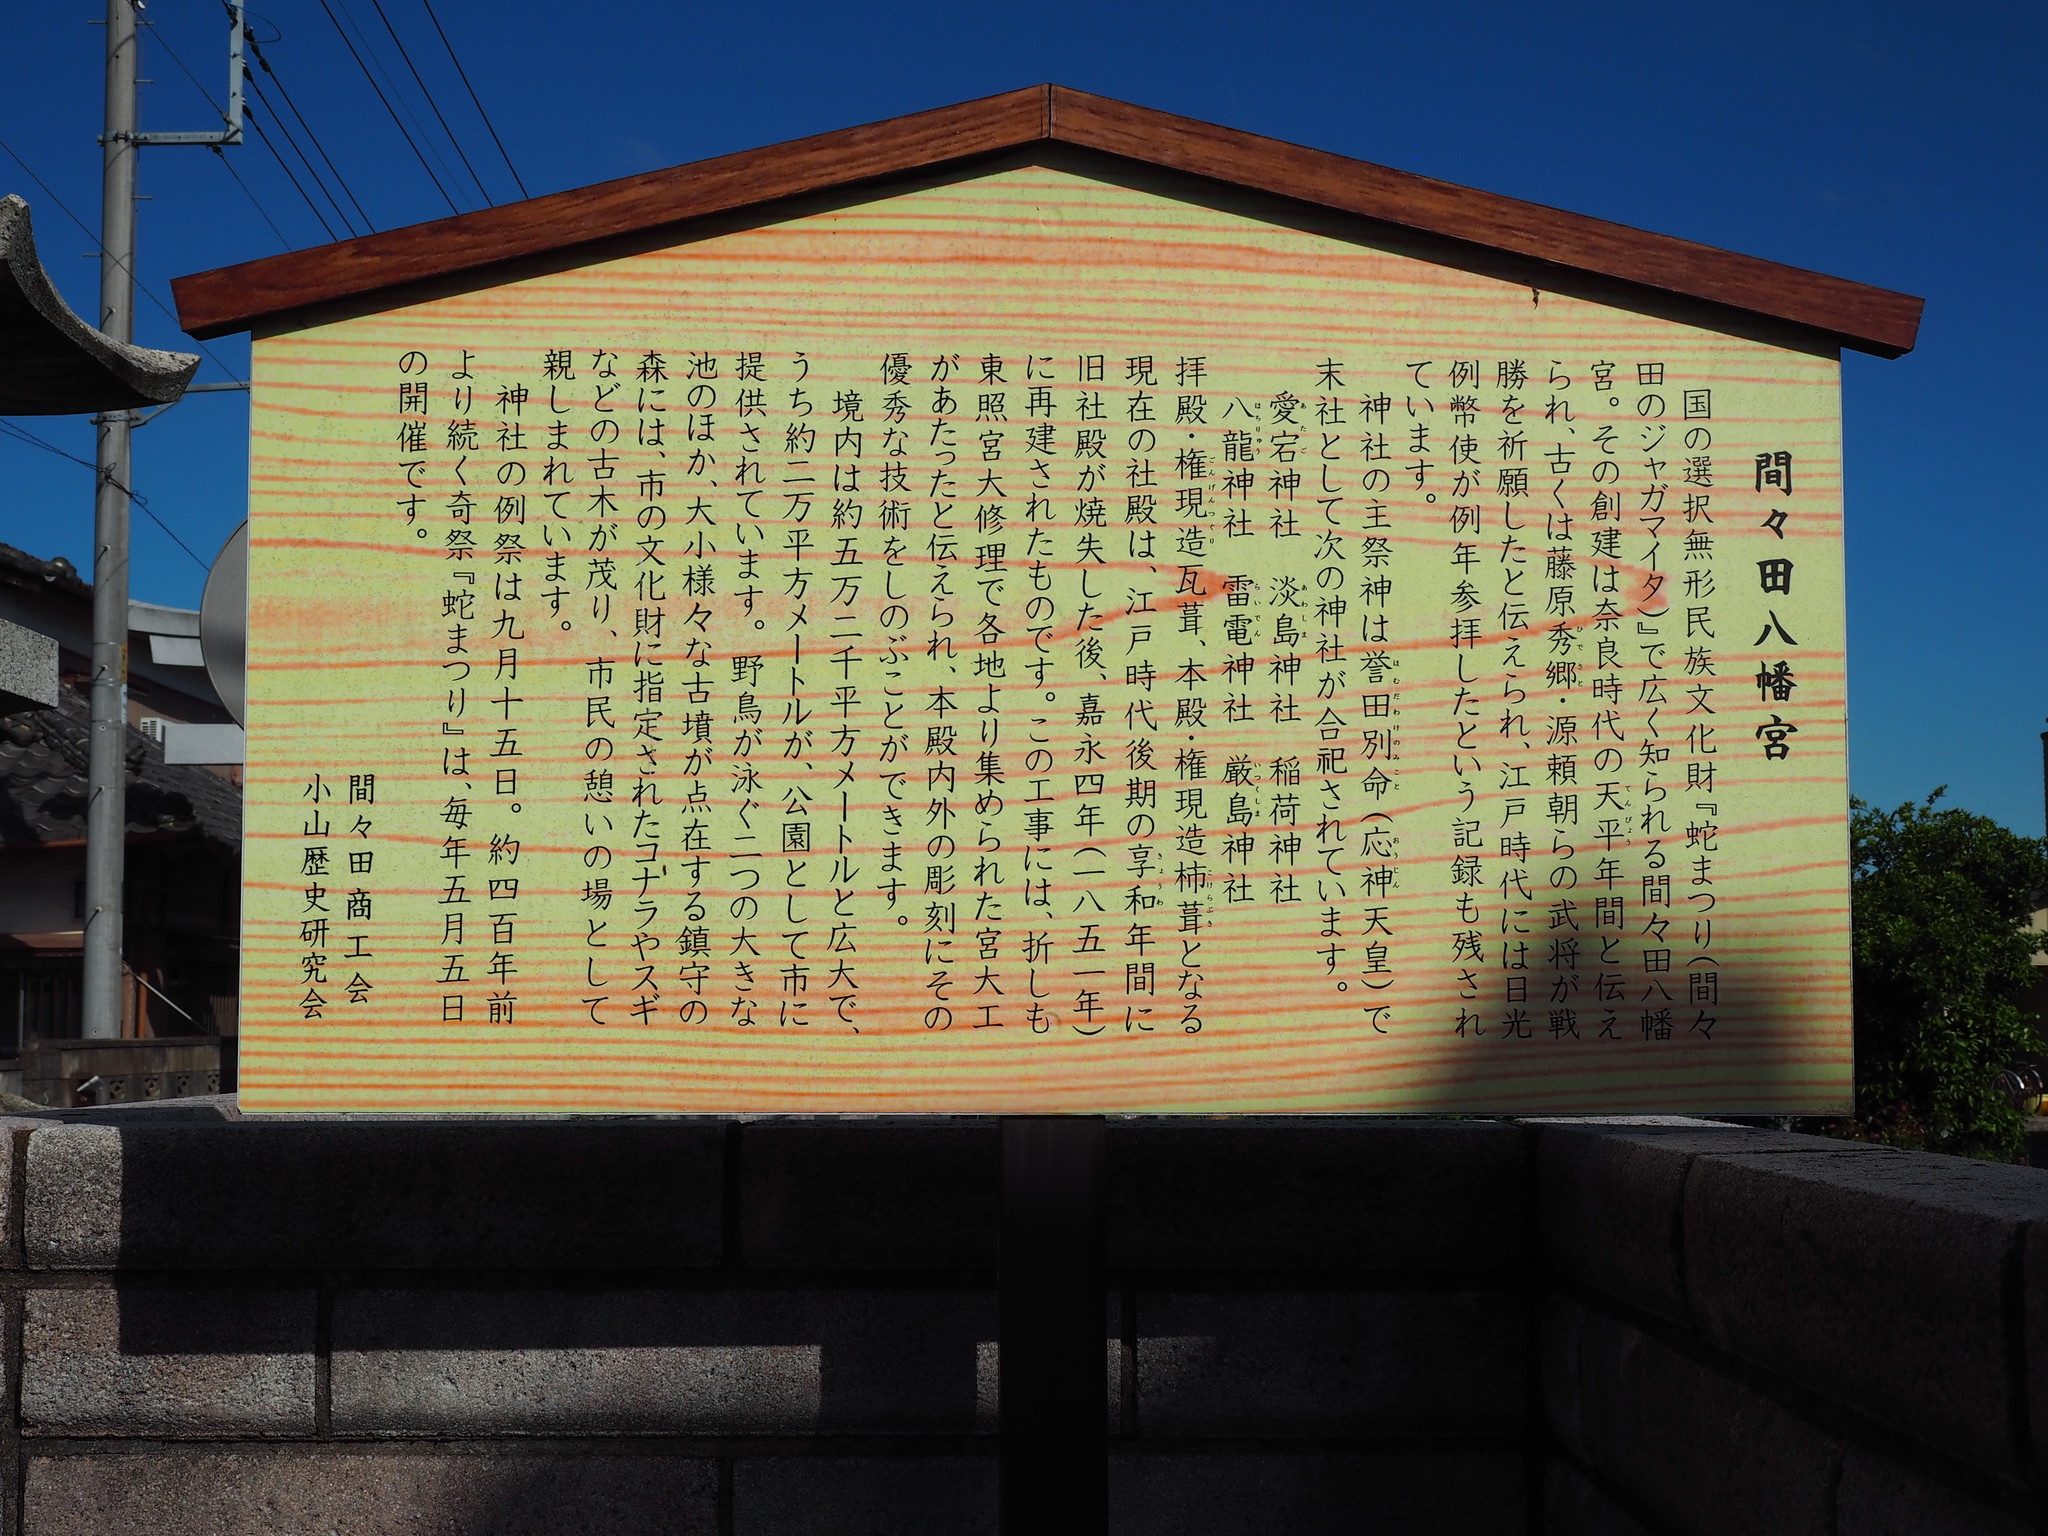 間々田八幡宮
国の選択無形民族文化財『蛇まつり(間々
田のジャガマイタ)』で広く知られる間々田八幡
宮。その創建は奈良時代の天平年間と伝え
られ、古くは藤原秀郷・源頼朝らの武将が戦
勝を祈願したと伝えられ、江戸時代には日光
例幣使が例年参拝したという記録も残され
ています。
神社の主祭神は誉田別命(応神天皇)で
末社として次の神社が合祀されています。
愛宕神社 淡島神社 稲荷神社
八龍神社 雷電神社 厳島神社
拝殿・権現造瓦葺、本殿・権現造柿葺となる
現在の社殿は、江戸時代後期の享和年間に
旧社殿が焼失した後、嘉永四年(一八五一年)
に再建されたものです。この工事には、折しも
東照宮大修理で各地より集められた宮大工
があたったと伝えられ、本殿内外の彫刻にその
優秀な技術をしのぶことができます。
境内は約五万二千平方メートルと広大で、
うち約二万平方メートルが、公園として市に
提供されています。野鳥が泳ぐ二つの大きな
池のほか、大小様々な古墳が点在する鎮守の
森には、市の文化財に指定されたコナラやスギ
などの古木が茂り、市民の憩いの場として
親しまれています。
神社の例祭は九月十五日。約四百年前
より続く奇祭『蛇まつり』は、毎年五月五日
の開催です。
間々田商工会
小山歴史研究会